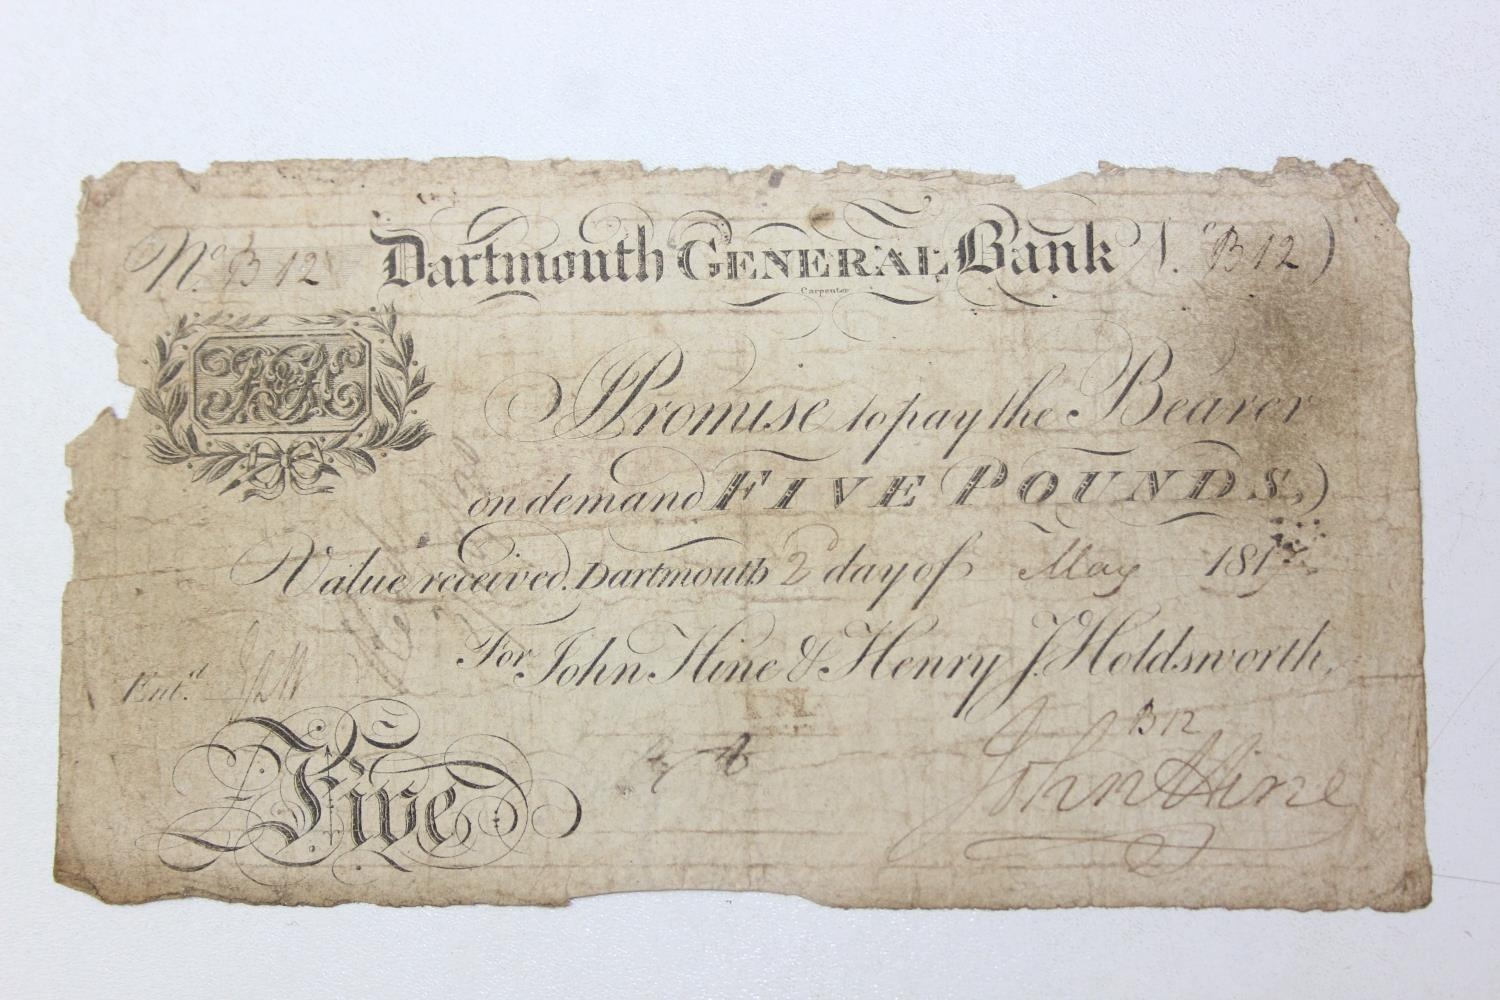 No. B 12 Dartmouth GENERAL Bank No. B 12
Carpenter
J&H
I Promise to pay the Bearer
on demand FIVE POUNDS,
Value received. Dartmouth 2 day of May 181
For John Hine & Henry J. Holdsworth,
Ent.d
B 12
Five
John Hine